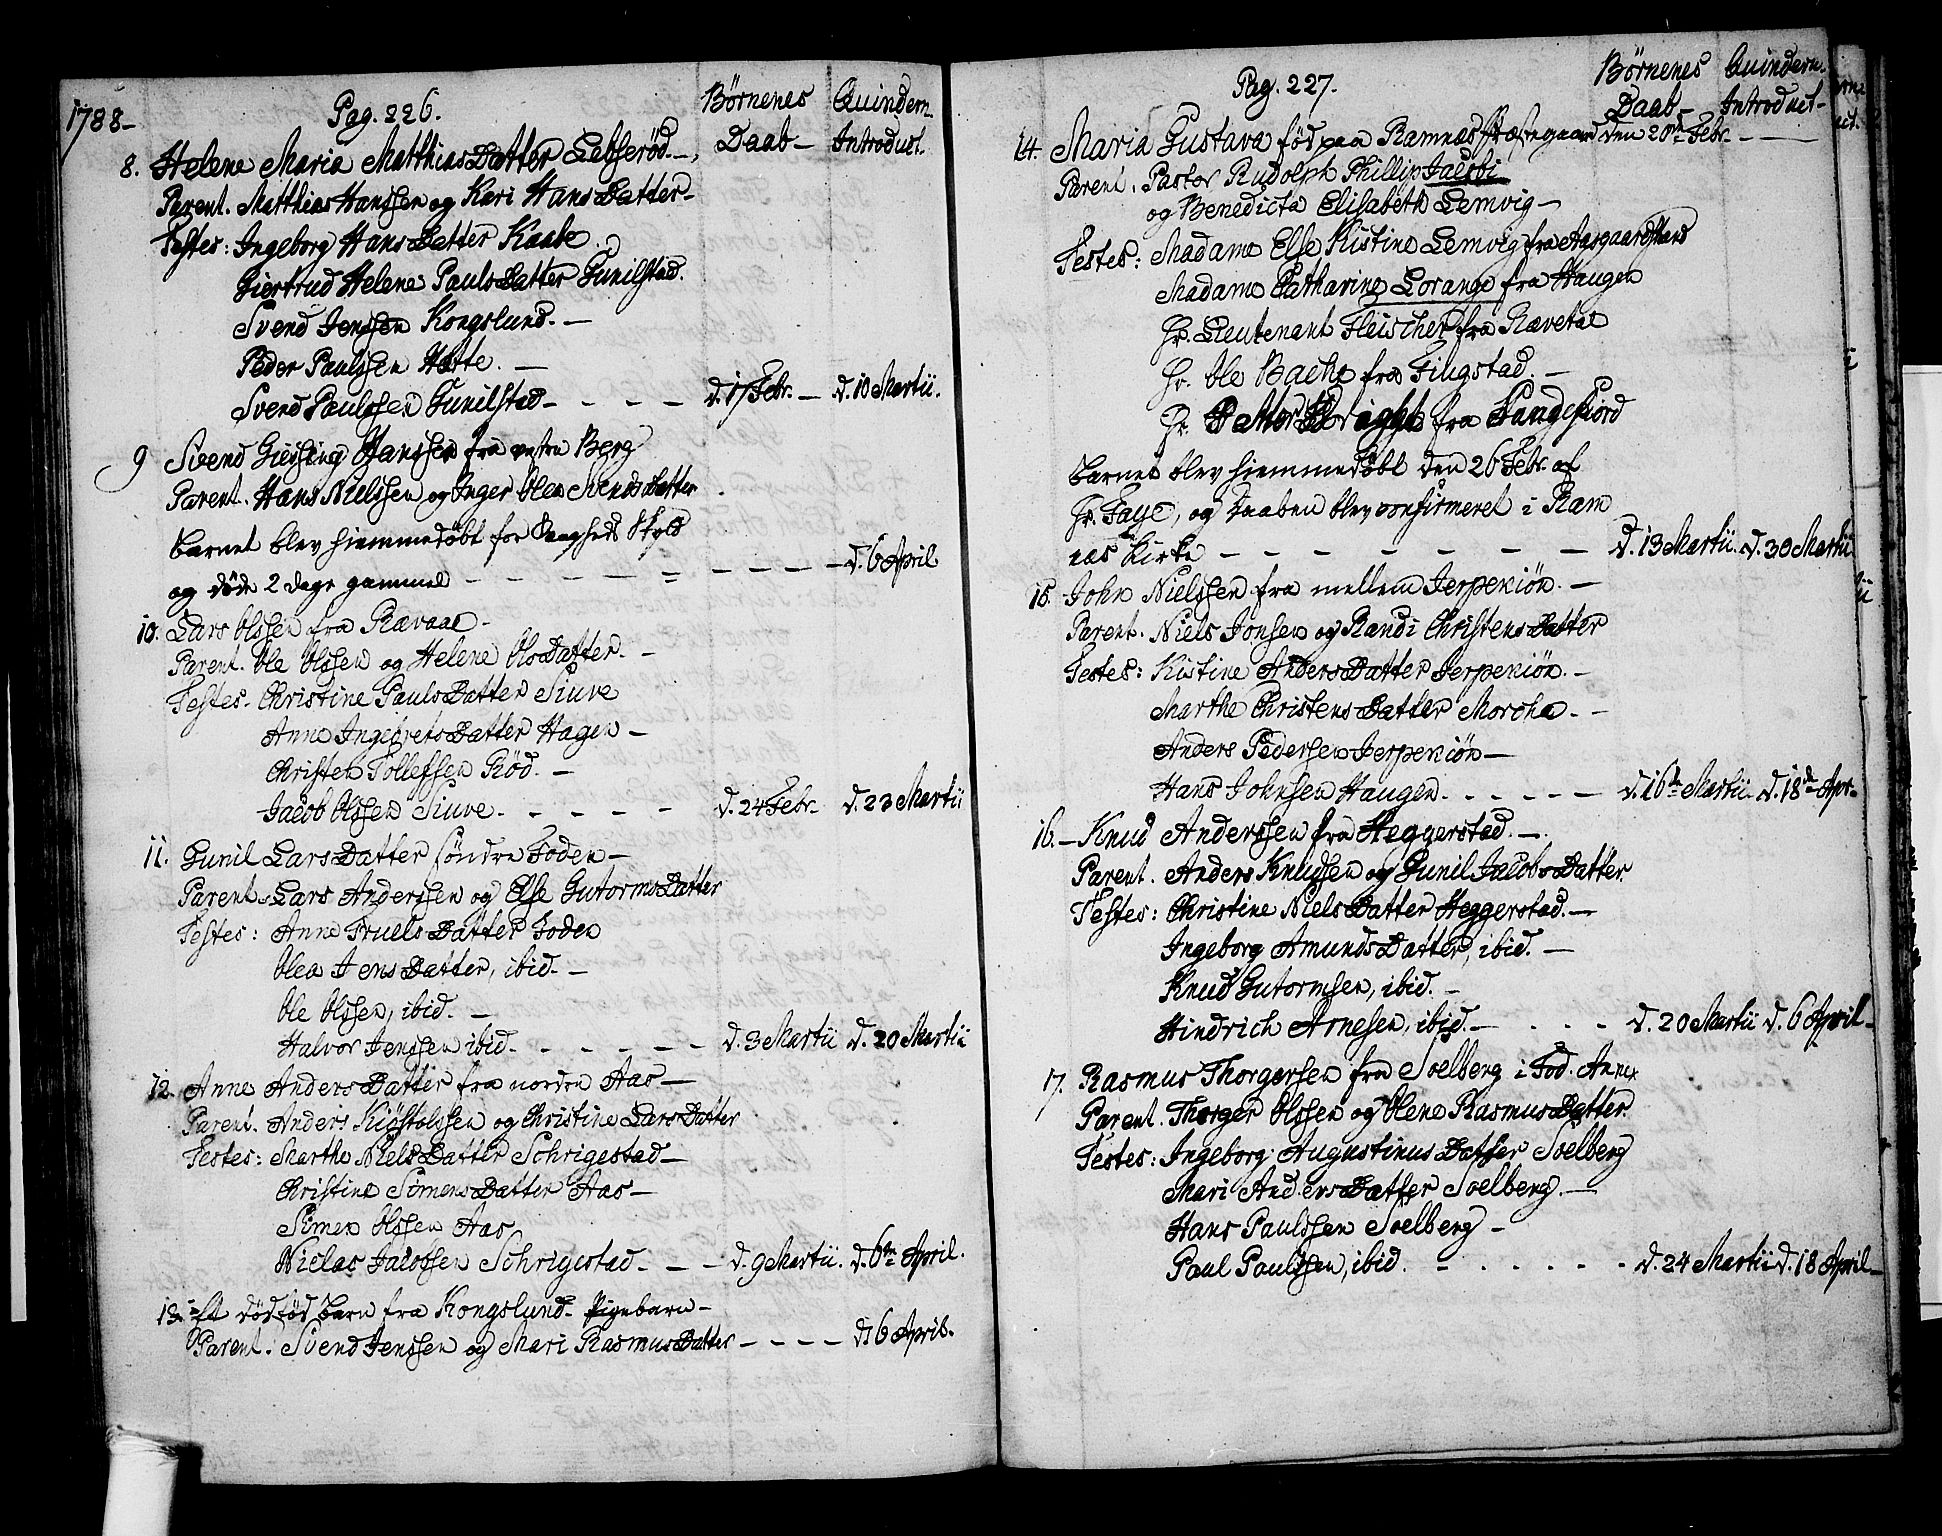 1788-
Pag. 226.
Børnenes Daab-
Quindern. Introduct.
8. Helene Maria MatthiasDatter Lebserød.-
Parent. Matthias Hanssen og Kari HansDatter-
Testes: Ingeborg HansDatter Kaabe.
Giertrud Helene PaulsDatter Gunilstad.
Svend Jenssen Kongslund.-
Peder Paulssen Hotte.-
Svend Paulssen Gunilstad- - - - d. 17 Febr.- d. 10 Martii.
9 Svend Giessing Hanssen fra vestre Berg
Parent. Hans Nielssen og Inger Olea SvendsDatter
Barnet blev hiemmedøbt for Svagheds Skyld
og døde 2 dage gammel - - - - - - - - - d. 6 April
10. Lars Olssen fra Rævaal-
Parent. Ole Olssen og Helene OlsDatter.-
Testes. Christine PaulsDatter Siuve
Anne IngebretsDatter Hagen-
Christen Tollefsen Rød.-
Jacob Olssen Siuve.- - - - d. 24 Febr. d. 23 Martii
11. Gunil LarsDatter søndre Foden-
Parent. Lars Anderssen og Else GutormsDatter
Testes: Anne TruelsDatter Foden
Olea JensDatter, ibid.-
Ole Olssen, ibid.-
Halvor Jenssen ibid. - - - - - d. 3 Martii d. 20 Martii
12. Anne AndersDatter fra nordre Aas-
Parent. Anders Kiøstolssen og Christine LarsDatter
Testes: Marthe NielsDatter Schrigestad-
Christine SimensDatter Aas-
Simen Olssen Aas
Niclas Jacobsen Schrigestad. - - - d. 9 Martii. d. 6te April.
13. Et dødfød Barn fra Kongslund. Pigebarn-
Parent: Svend Jenssen og Mari RasmusDatter - - - - d. 6 April.
Pag. 227.
Børnenes Daab-
Quindern. Introduct-
14. Maria Gustava fød paa Ramnæs Præstegaard den 20de Febr.-
Parent. Pastor Rudolph Phillip Jacobi
og Benedicta Elisabeth Lemvig-
Testes: Madame Else Kistine Lemvig fra Aasgaardstrand
Madame Catharine Lorange fra Haugen
Hr. Lieutenant Fleischer fra Rævetal
Hr. Ole Bache fra Fingstad.-
Hr. fra Sandefiord
Barnet blev hiemmedøbt den 26 Febr. af
Hr. Faye, og Daaben blev confirmeret i Ram
næs Kirke - - - - - - - d. 13 Martii. d. 30 Martii
15. John Nielssen fra mellem Jerpekiøn.-
Parent. Niels Jonsen og Randi ChristensDatter
Testes: Kistine AndersDatter Jerpekiøn.-
Marthe ChristensDatter Morcha.-
Anders Pedersen Jerpekiøn-
Hans Johnsen Haugen. - - - - - d. 16de Martii d. 18de Apr-
16.- Knud Anderssen fra Heggerstad.-
Parent. Anders Knudsen og Gunil JacobsDatter.
Testes: Christine NielsDatter Heggerstad.-
Ingeborg AmundsDatter, ibid.-
Knud Gutormsen, ibid.-
Hindrich Arnesen, ibid.- - - - d. 20 Martii d. 6 April-
17. Rasmus Thorgersen fra Soelberg i Fod. Annex
Parent. Thorger Olssen og Olene RasmusDatter.
Testes: Ingeborg AugustinusDatter Soelberg
Mari AndersDatter Soelberg.-
Hans Paulssen Soelberg-
Paul Paulssen, ibid. - - - - - - d. 24 Martii d. 18 April-